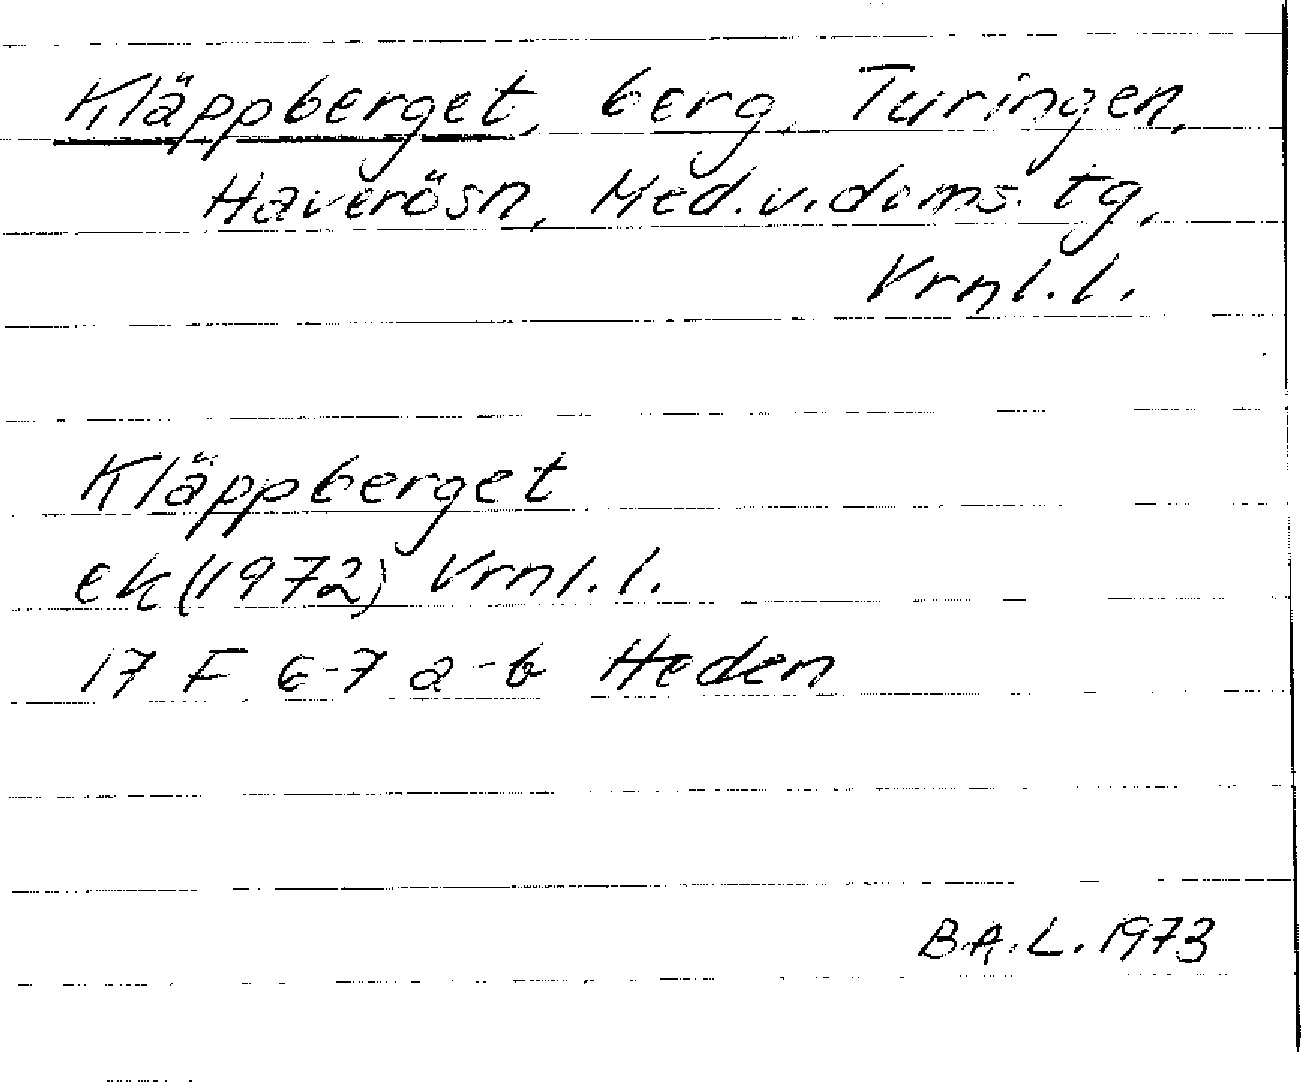 Kläppberget, berg, Turingen,
Haverösn, Med.v.doms. tg,
Vrnl.l.
Kläppberget
ek(1972) Vrnl.l.
17 F 6-7 a-b Heden
B.A.L. 1973